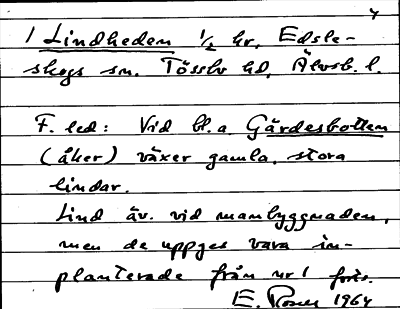 4
1 Lindheden 1/2 hr, Edsle-
skogs sn. Tössbo hd, Älvsb. l.
F. led: Vid bl.a Gärdesbotten
(åker) växer gamla, stora
lindar.
Lind äv. vid manbyggnaden,
men de uppges vara in-
planterade från nr 1
E. 1964